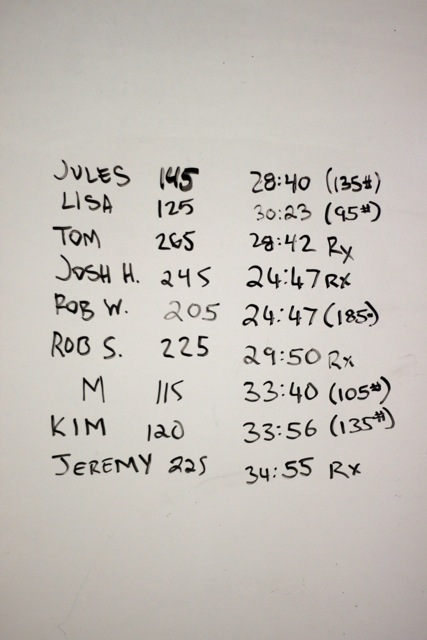 JULES 145 28:40 (135#)
LISA 125 30:23 (95#)
TOM 265 28:42 Rx
JOSH H. 245 24:47 Rx
ROB W. 205 24:47 (185#)
ROB S. 225 29:50 Rx
M 115 33:40 (105#)
KIM 120 33:56 (135#)
JEREMY 225 34:55 Rx